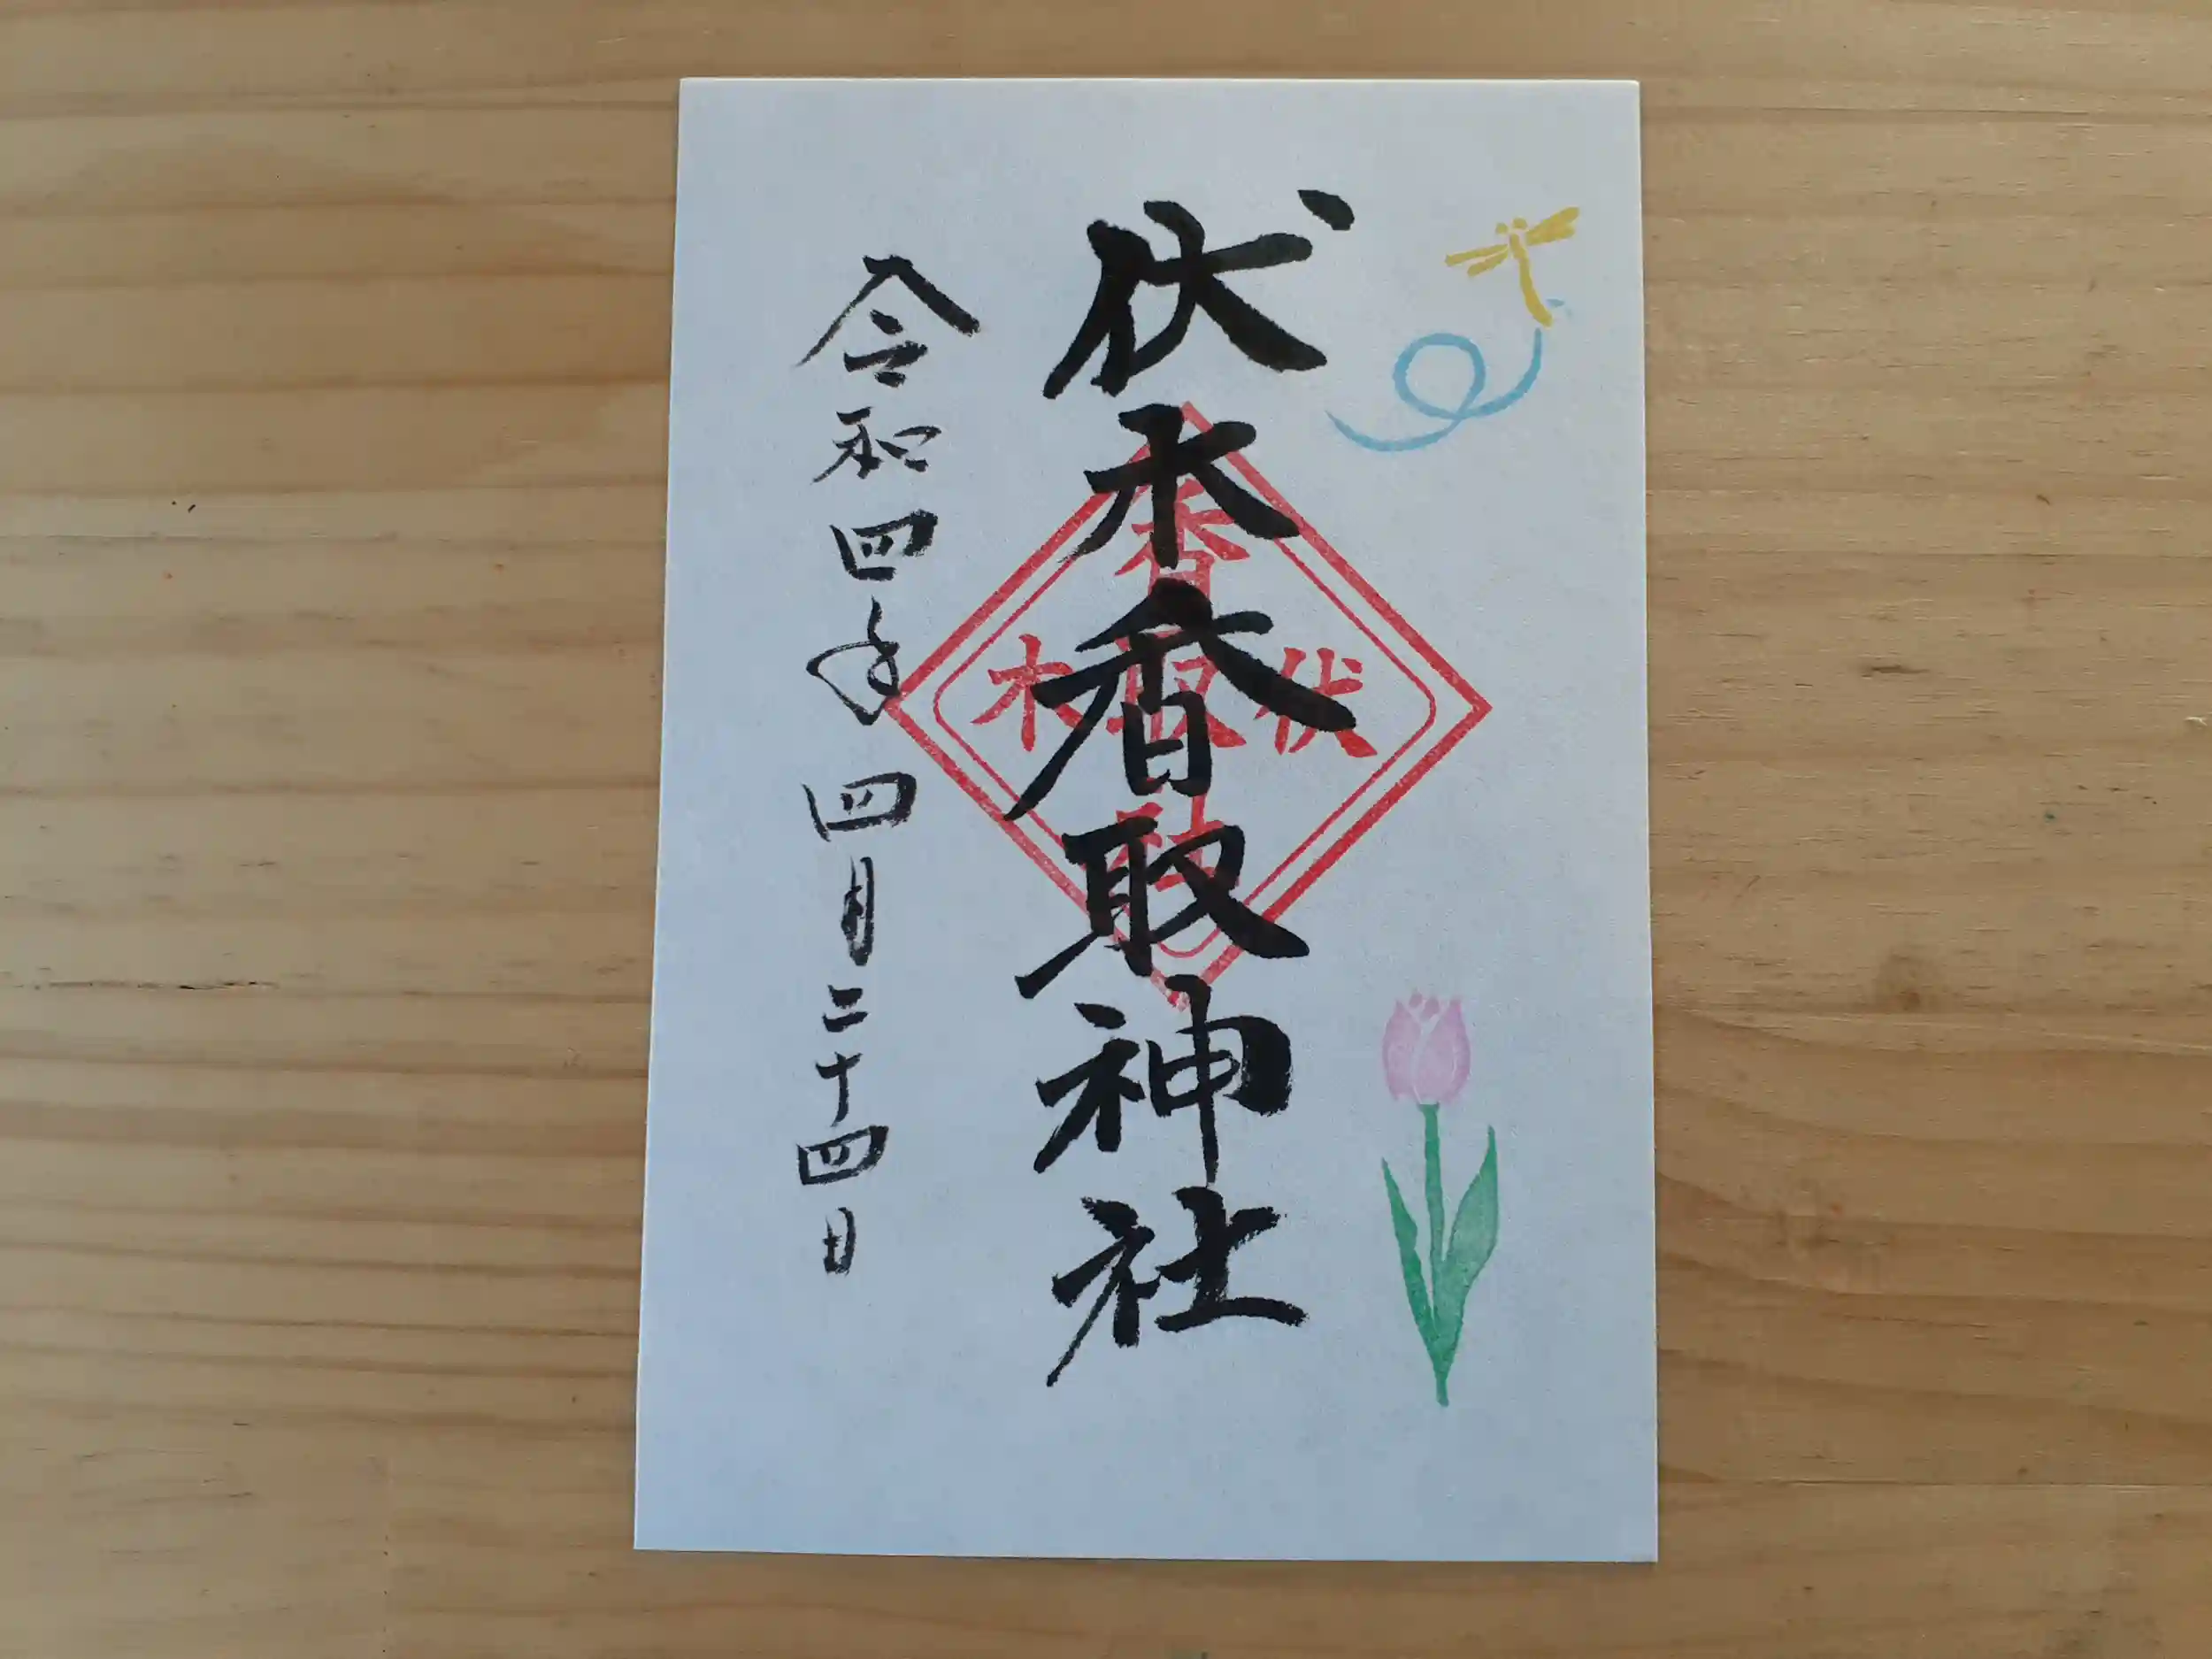 伏木香取神社
令和四年四月二十四日
香
木取伏
社